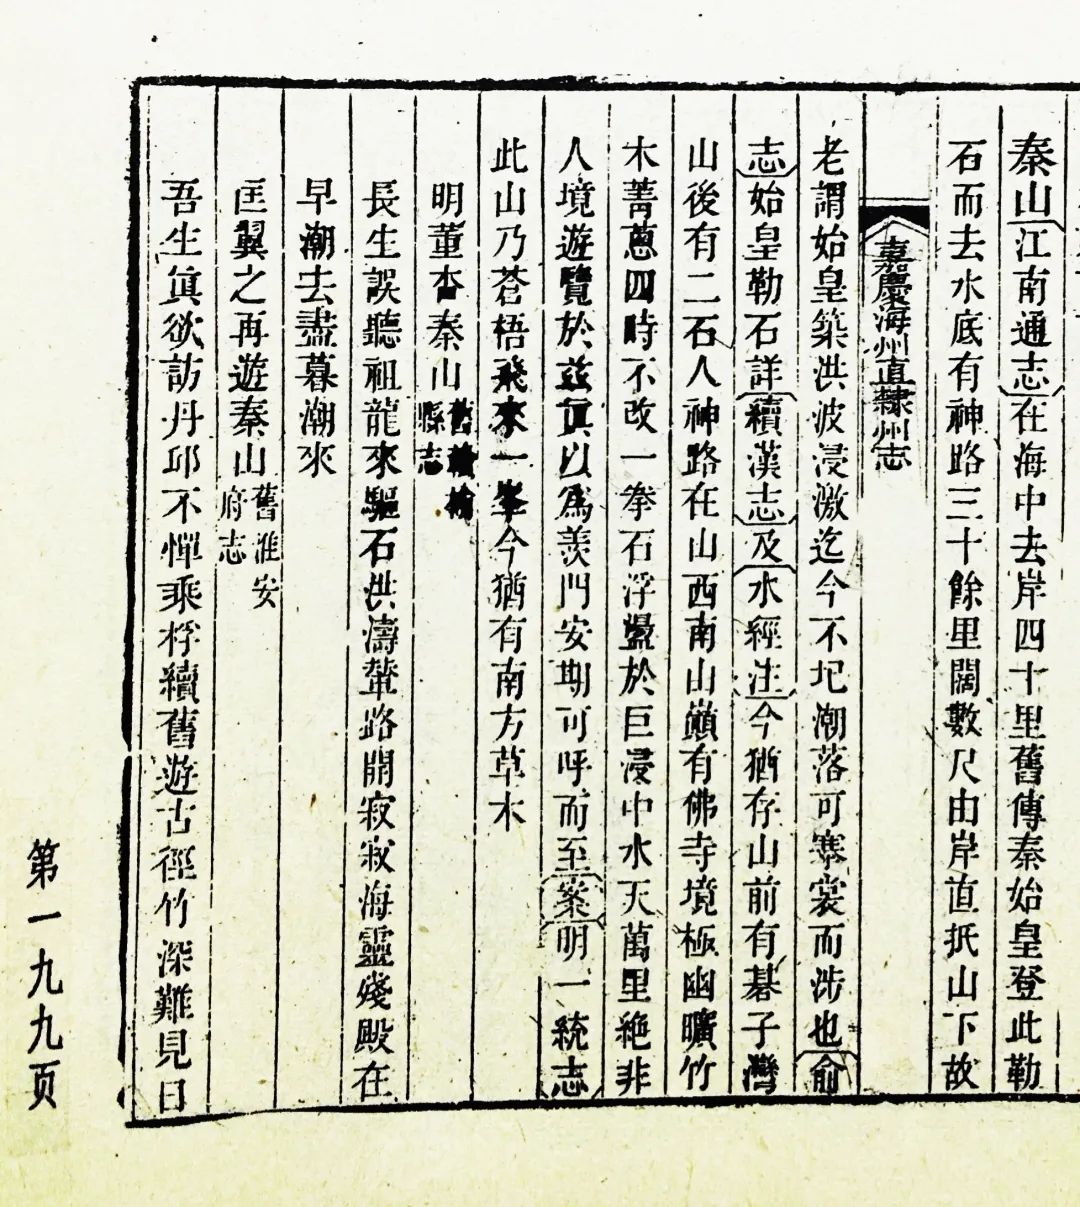 秦山江南通志在海中去岸四十里舊傳秦始皇登此勒
石而去水底有神路三十餘里闊數尺由岸直抵山下故
嘉慶海州直隸州志
老謂始皇築洪波浸激迄今不圮潮落可褰裳而涉也俞
志始皇勒石詳續漢志及水經注今猶存山前有碁子灣
山後有二石人神路在山西南山巔有佛寺境極幽曠竹
木菁蔥四時不改一拳石浮盪於巨浸中水天萬里絕非
人境遊覽於茲眞以爲羨門安期可呼而至案明一統志
此山乃蒼梧飛來一峯今猶有南方草木
明董杏秦山舊贛榆縣志
長生誤聽祖龍來驅石洪濤輦路開寂寂海靈殘殿在
早潮去盡暮潮來
匡翼之再遊秦山舊淮安府志
吾生眞欲訪丹邱不憚乘桴續舊遊古徑竹深難見日
第一九九页